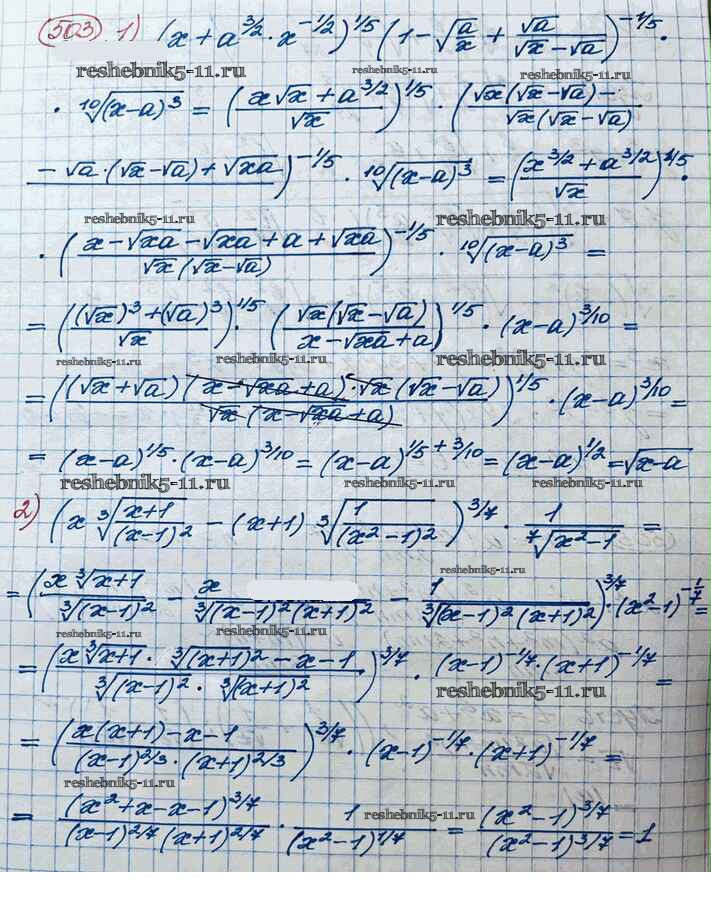 503 1) (x + a^{3/2} · x^{-1/2})^{1/5} (1 - √(a/x) + √a/(√x - √a))^{-1/5} ·
reshebnik5-11.ru reshebnik5-11.ru
· ¹⁰√((x-a)³) = ((x√x + a^{3/2})/√x)^{1/5} · ((√x(√x - √a) -)/(√x(√x - √a))
(- √a · (√x - √a) + √xa)^{-1/5} · ¹⁰√((x-a)³) = ((x^{3/2} + a^{3/2})/√x)^{1/5} ·
reshebnik5-11.ru reshebnik5-11.ru
· ((x - √xa - √xa + a + √xa)/(√x(√x - √a)))^{-1/5} · ¹⁰√((x-a)³) =
= (((√x)³ + (√a)³)/√x)^{1/5} · ((√x(√x - √a))/(x - √xa + a))^{1/5} · (x-a)^{3/10} =
reshebnik5-11.ru reshebnik5-11.ru reshebnik5-11.ru
= (((√x + √a)(x - √xa + a) · √x(√x - √a))/(√x(x - √xa + a)))^{1/5} · (x-a)^{3/10} =
= (x-a)^{1/5} · (x-a)^{3/10} = (x-a)^{1/5 + 3/10} = (x-a)^{1/2} = √(x-a)
reshebnik5-11.ru reshebnik5-11.ru
2) (x ³√((x+1)/(x-1)²) - (x+1) ³√(1/(x²-1)²))^{3/7} · 1/⁷√(x²-1) =
reshebnik5-11.ru
= ((x ³√(x+1))/³√((x-1)²) - x/³√((x-1)²(x+1)²) - 1/³√((x-1)²(x+1)²))^{3/7} · (x²-1)^{-1/7} =
reshebnik5-11.ru reshebnik5-11.ru
= ((x ³√(x+1) · ³√((x+1)²) - x - 1)/(³√((x-1)²) · ³√((x+1)²)))^{3/7} · (x-1)^{-1/7} · (x+1)^{-1/7} =
= ((x(x+1) - x - 1)/((x-1)^{2/3} · (x+1)^{2/3}))^{3/7} · (x-1)^{-1/7} · (x+1)^{-1/7} =
reshebnik5-11.ru reshebnik5-11.ru
= ((x² + x - x - 1)^{3/7})/((x-1)^{2/7}(x+1)^{2/7}) · 1/(x²-1)^{1/7} = ((x²-1)^{3/7})/((x²-1)^{3/7}) = 1